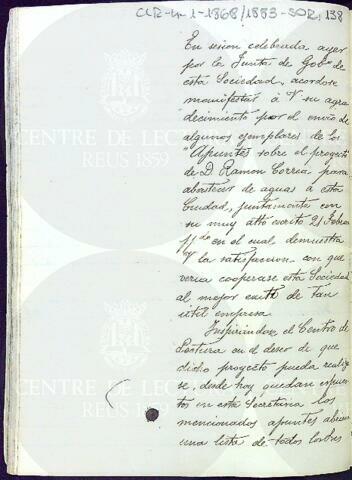 CLR-4-1-1868/1883-SOR, 138
En sesion celebrada ayer
por la Junta de Gobno de
esta Sociedad, acordose
manifestar á V su agra
decimiento por el envio de
algunos ejemplares de los
"Apuntes sobre el proyecto
de D. Ramon Correa para
abastecer de aguas á esta
Ciudad, juntamente con
su muy atto escrito 21 Febro
ppdo en el cual demuestra
V la satisfaccion con que
veria cooperase esta Sociedad
al mejor exito de tan
útil empresa.
Inspirandose el Centro de
Lectura en el deseo de que
dicho proyecto pueda realizar
se, desde hoy quedan espues
tos en esta Secretaria los
mencionados apuntes
una lista de todos los
CENTRE DE LECTURA
REUS 1859